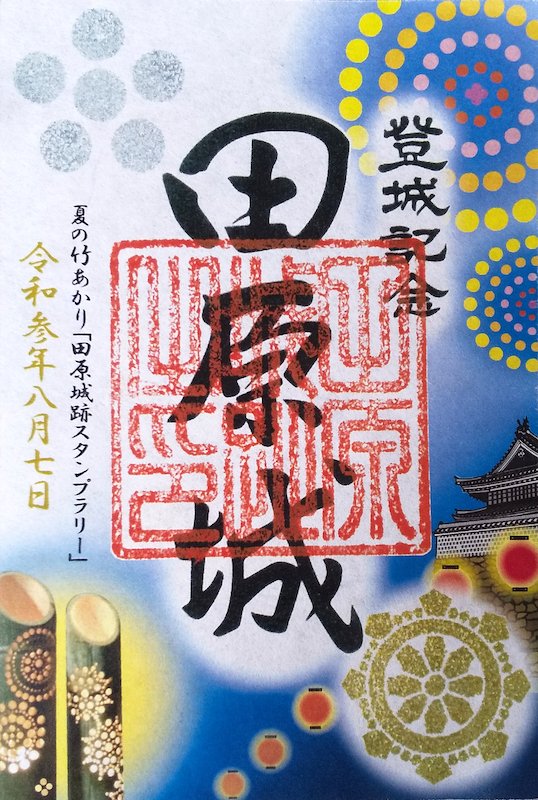 登城記念
田原城
夏の竹あかり「田原城跡スタンプラリー」
令和参年八月七日